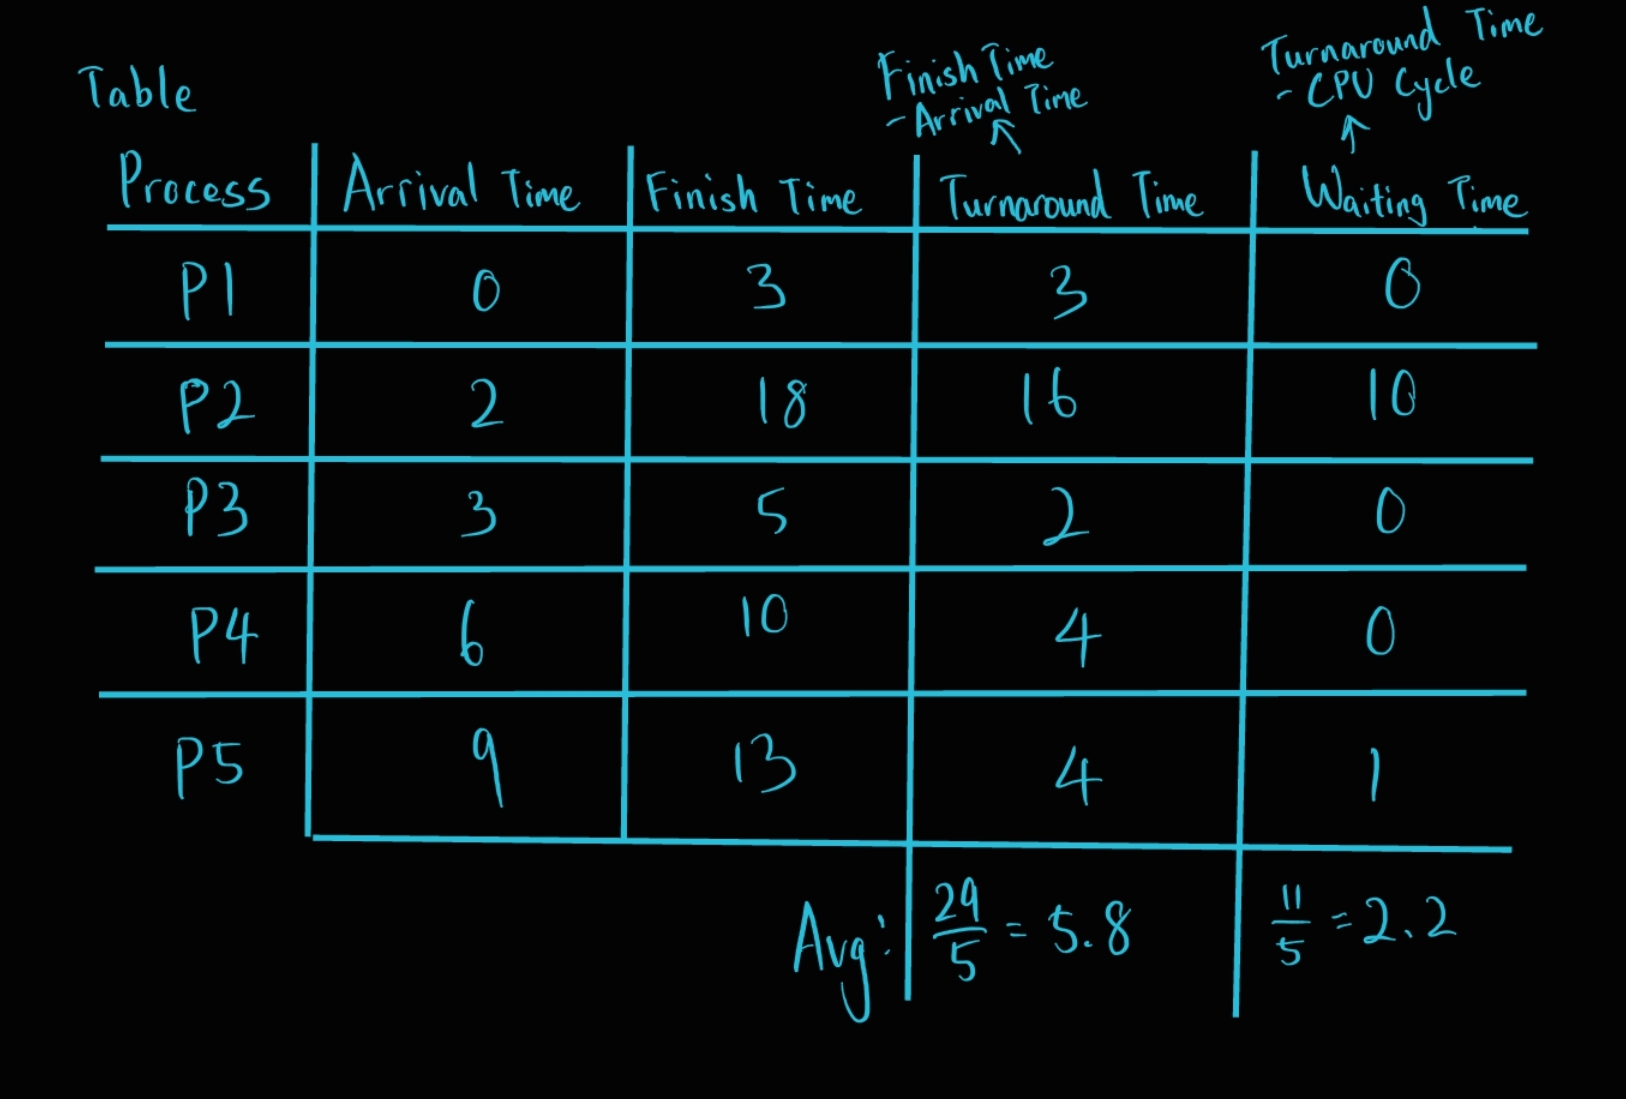 Table
Finish Time
- Arrival Time
Turnaround Time
- CPU Cycle
Process Arrival Time Finish Time Turnaround Time Waiting Time
P1 0 3 3 0
P2 2 18 16 10
P3 3 5 2 0
P4 6 10 4 0
P5 9 13 4 1
Avg: 29/5 = 5.8 11/5 = 2.2